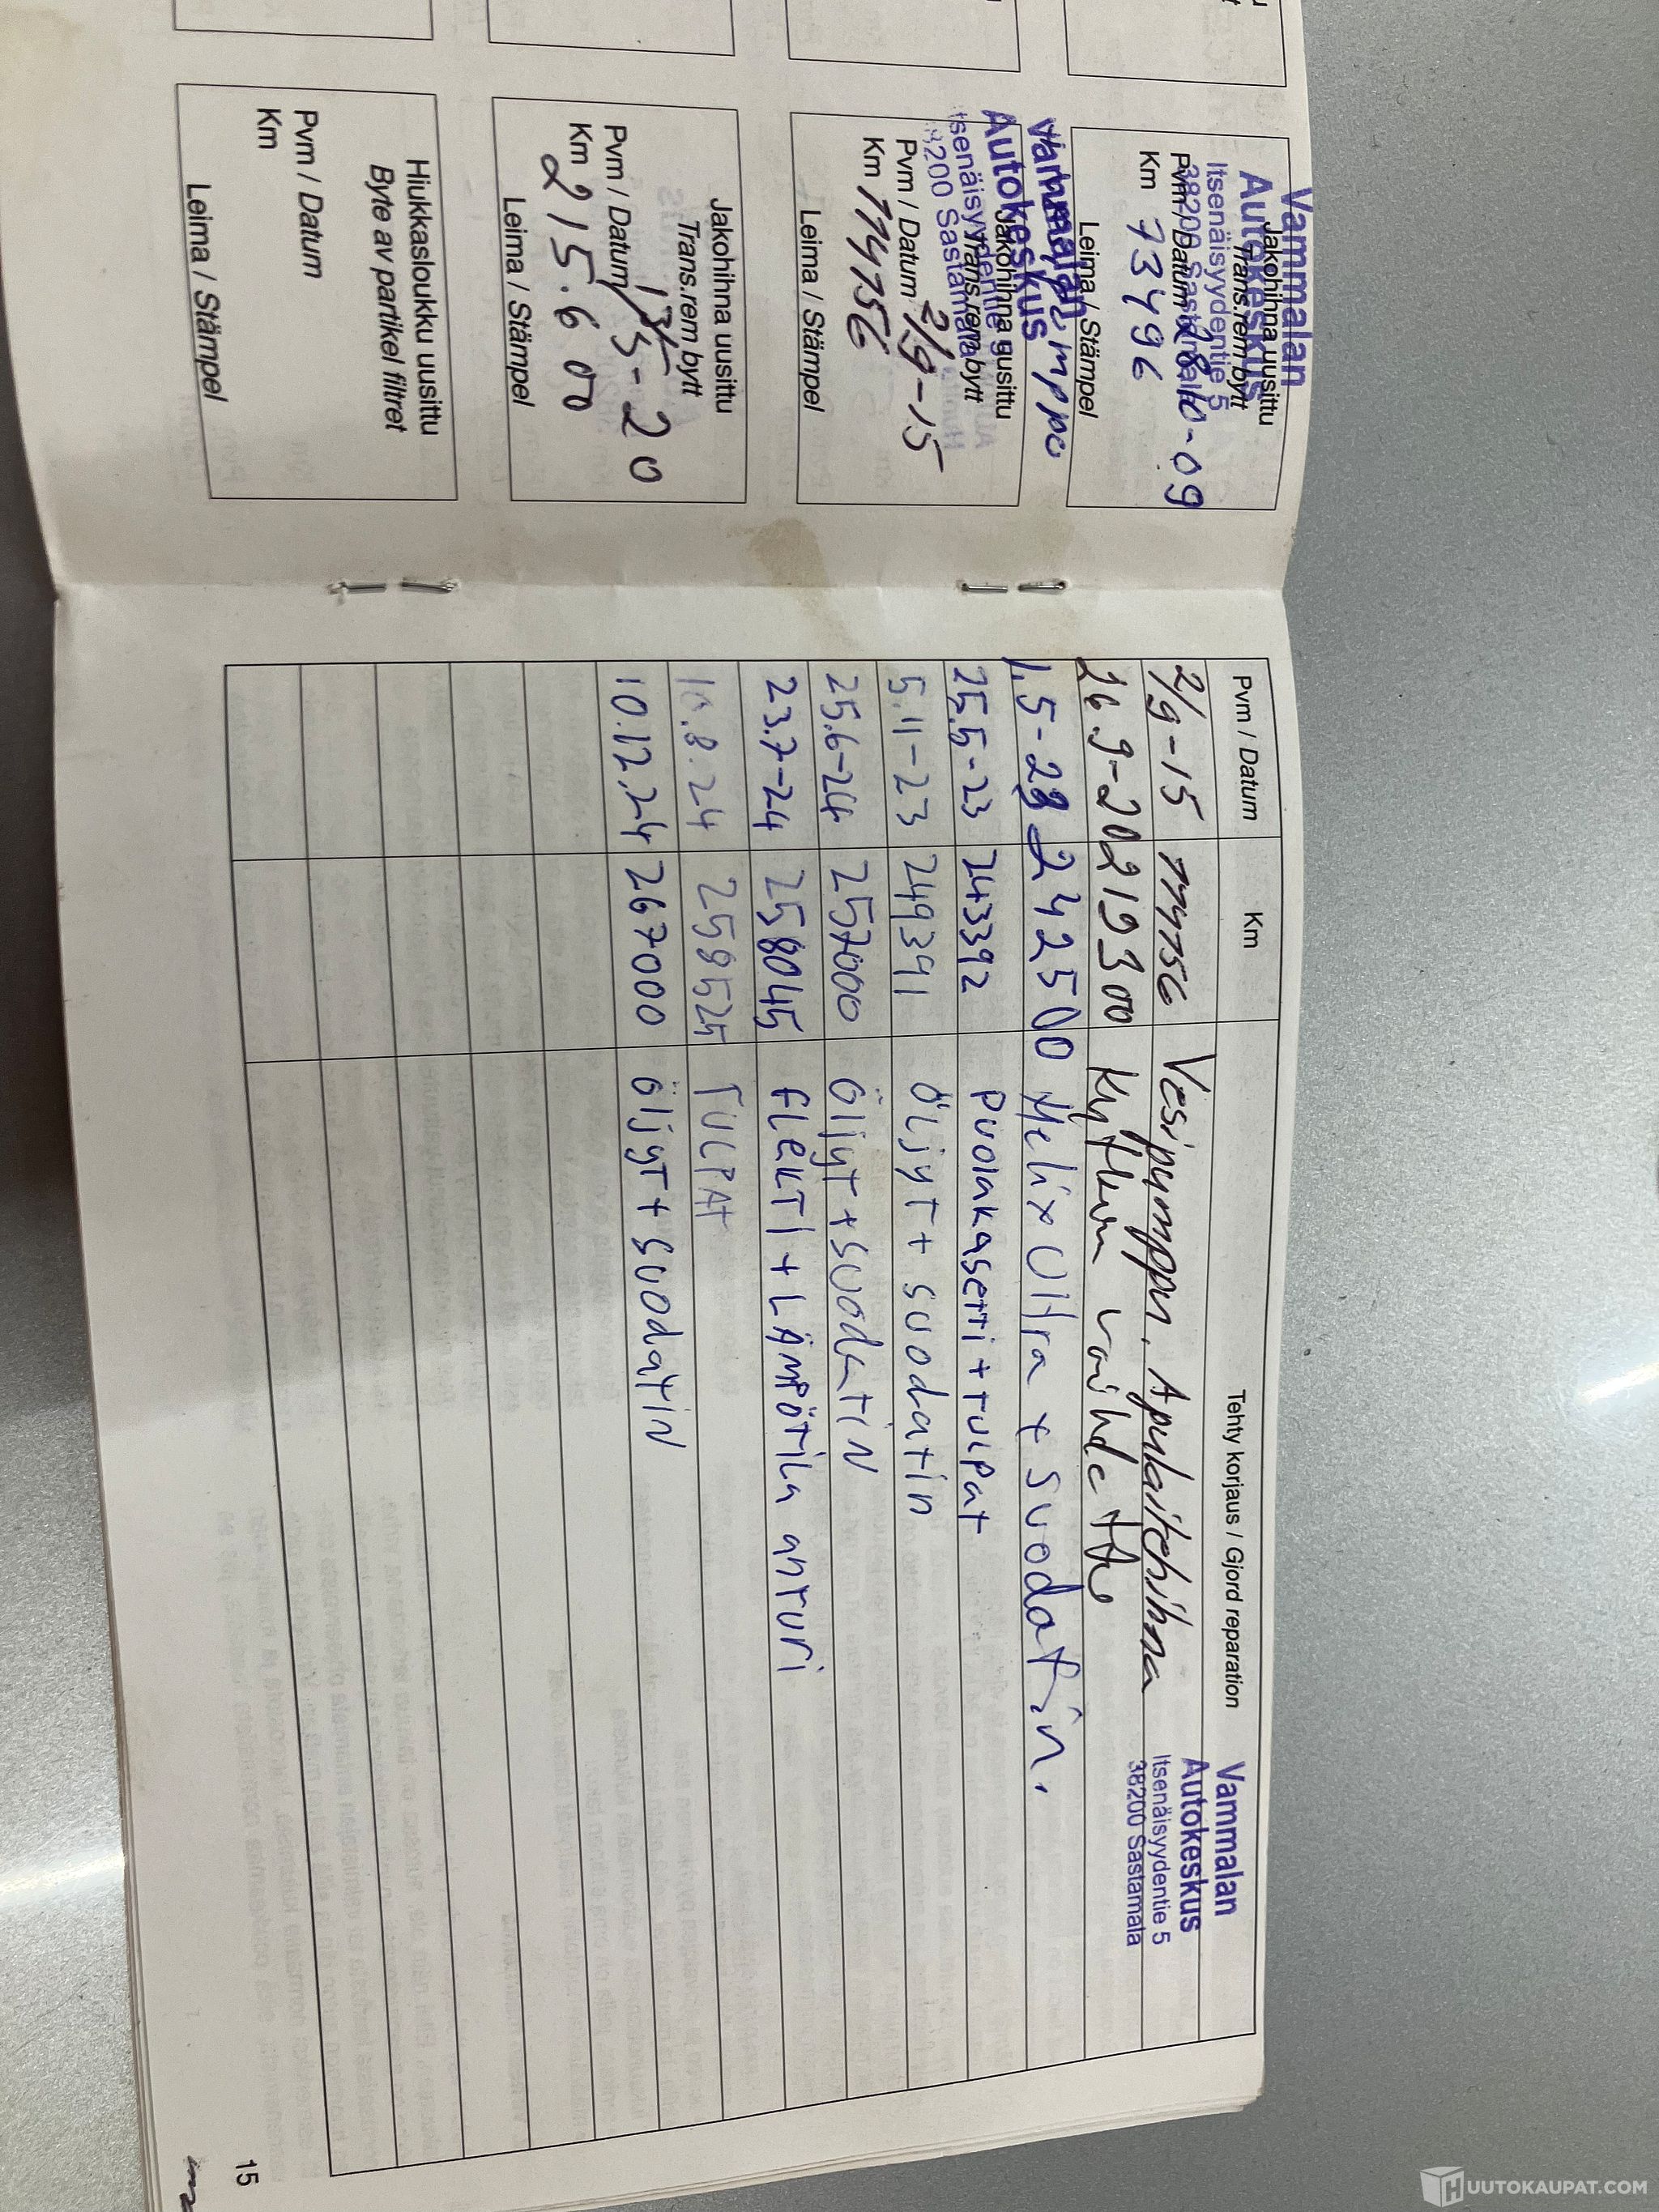 Vammalan
Autokeskus
Itsenäisyydentie 5
38200 Sastamala
Jakohihna uusittu
Trans.rem bytt
Pvm / Datum 28-10-09
Km 73496
Leima / Stämpel
Vammalan
Autokeskus
tsenäisyydentie 5
200 Sastamala
Jakohihna uusittu
Trans.rem bytt
Pvm / Datum 2/9-15
Km 114756
Leima / Stämpel
Jakohihna uusittu
Trans.rem bytt
Pvm / Datum 13/5-20
Km 215.600
Leima / Stämpel
Hiukkasloukku uusittu
Byte av partikel filtret
Pvm / Datum
Km
Leima / Stämpel
Vammalan
Autokeskus
Itsenäisyydentie 5
38200 Sastamala
Pvm / Datum Km Tehty korjaus / Gjord reparation
2/9-15 114756 Vesipumppu, Apulaitehihna
26.9-20 219300 Kytkin vaihdettu
1.5-23 242500 Helix Ultra + suodatin.
25.5-23 243392 PUOlakasetti + tulpat
5.11-23 249391 ÖLjyT + suodatin
25.6-24 257000 Öljyt + suodatiN
23.7-24 258045 fLEKTI + LÄMPÖTiLa anturi
10.8.24 258525 TULPAT
10.12.24 267000 öljyt + suodatiN
15
UUTOKAUPAT.COM